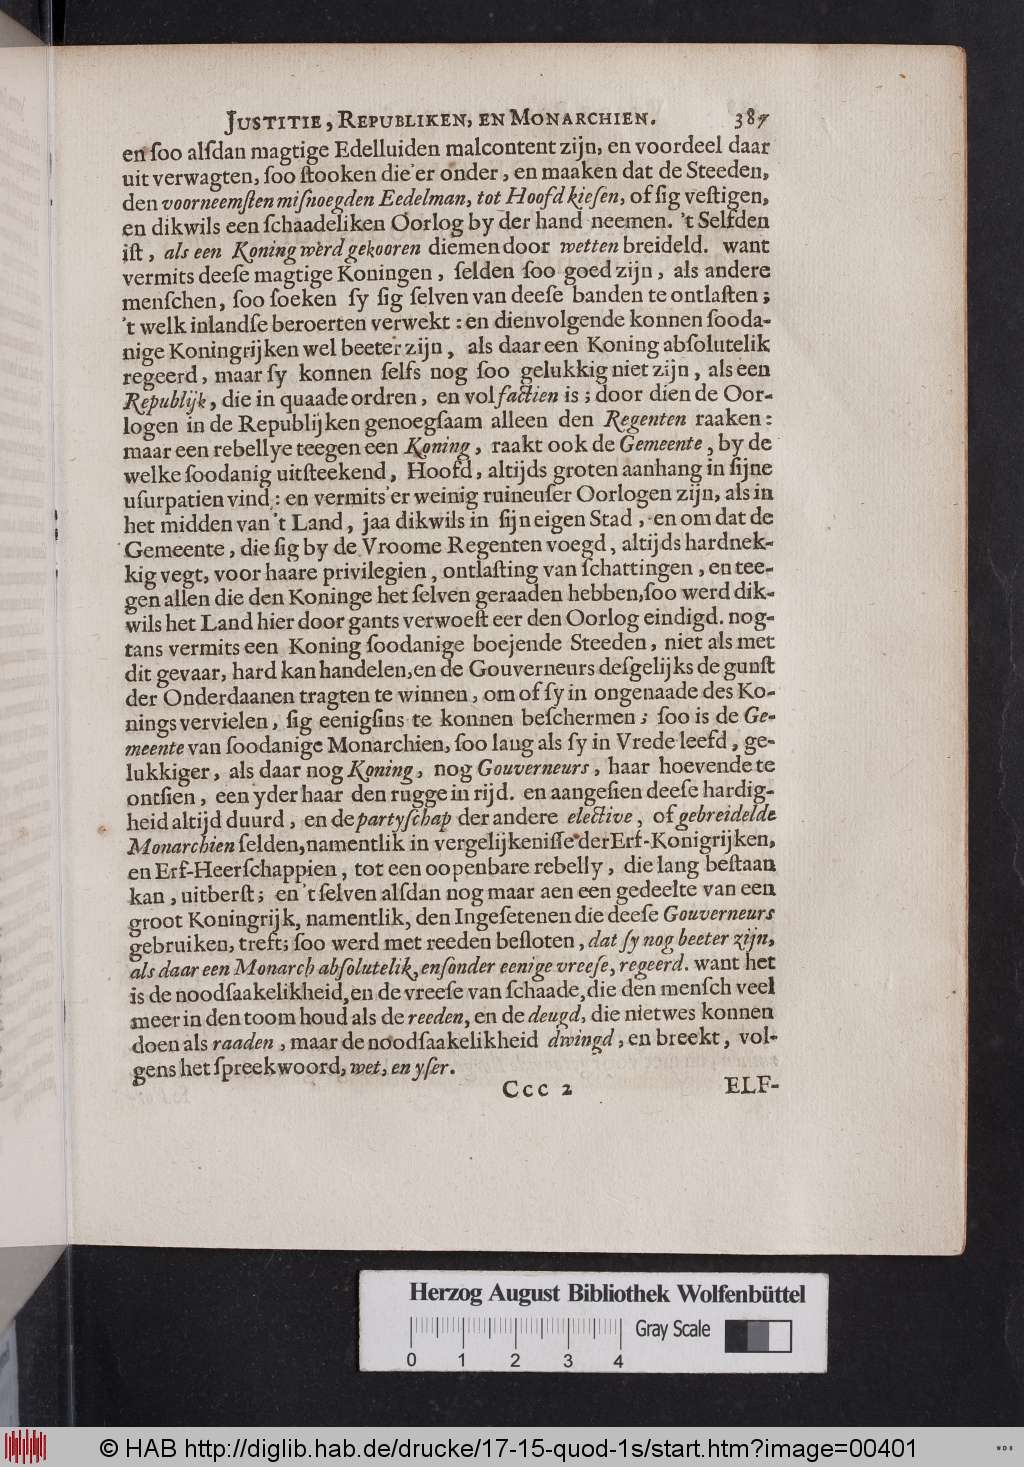 JUSTITIE, REPUBLIKEN, EN MONARCHIEN. 387
en ſoo alſdan magtige Edelluiden malcontent zijn, en voordeel daar
uit verwagten, ſoo ſtooken die'er onder, en maaken dat de Steeden,
den voorneemſten miſnoegden Eedelman, tot Hoofd kieſen, of ſig veſtigen,
en dikwils een ſchaadeliken Oorlog by der hand neemen. 't Selfden
iſt, als een Koning werd gekooren diemen door wetten breideld. want
vermits deeſe magtige Koningen, ſelden ſoo goed zijn, als andere
menſchen, ſoo ſoeken ſy ſig ſelven van deeſe banden te ontlaſten;
't welk inlandſe beroerten verwekt: en dienvolgende konnen ſooda-
nige Koningrijken wel beeter zijn, als daar een Koning abſolutelik
regeerd, maar ſy konnen ſelfs nog ſoo gelukkig niet zijn, als een
Republijk, die in quaade ordren, en vol factien is; door dien de Oor-
logen in de Republijken genoegſaam alleen den Regenten raaken:
maar een rebellye teegen een Koning, raakt ook de Gemeente, by de
welke ſoodanig uitſteekend, Hoofd, altijds groten aanhang in ſijne
uſurpatien vind: en vermits'er weinig ruineuſer Oorlogen zijn, als in
het midden van 't Land, jaa dikwils in ſijn eigen Stad, en om dat de
Gemeente, die ſig by de Vroome Regenten voegd, altijds hardnek-
kig vegt, voor haare privilegien, ontlaſting van ſchattingen, en tee-
gen allen die den Koninge het ſelven geraaden hebben, ſoo werd dik-
wils het Land hier door gants verwoeſt eer den Oorlog eindigd. nog-
tans vermits een Koning ſoodanige boejende Steeden, niet als met
dit gevaar, hard kan handelen, en de Gouverneurs deſgelijks de gunſt
der Onderdaanen tragten te winnen, om of ſy in ongenaade des Ko-
nings vervielen, ſig eenigſins te konnen beſchermen; ſoo is de Ge-
meente van ſoodanige Monarchien, ſoo lang als ſy in Vrede leefd, ge-
lukkiger, als daar nog Koning, nog Gouverneurs, haar hoevende te
ontſien, een yder haar den rugge in rijd. en aangeſien deeſe hardig-
heid altijd duurd, en de partyſchap der andere elective, of gebreidelde
Monarchien ſelden, namentlik in vergelijkeniſſe der Erf-Konigrijken,
en Erf-Heerſchappien, tot een oopenbare rebelly, die lang beſtaan
kan, uitberſt; en 't ſelven alſdan nog maar aen een gedeelte van een
groot Koningrijk, namentlik, den Ingeſetenen die deeſe Gouverneurs
gebruiken, treft; ſoo werd met reeden beſloten, dat ſy nog beeter zijn,
als daar een Monarch abſolutelik, en ſonder eenige vreeſe, regeerd. want het
is de noodſaakelikheid, en de vreeſe van ſchaade, die den menſch veel
meer in den toom houd als de reeden, en de deugd, die niet wes konnen
doen als raaden, maar de noodſaakelikheid dwingd, en breekt, vol-
gens het ſpreekwoord, wet, en yſer.
Ccc 2 ELF-
Herzog August Bibliothek Wolfenbüttel
Gray Scale
0 1 2 3 4
© HAB http://diglib.hab.de/drucke/17-15-quod-1s/start.htm?image=00401